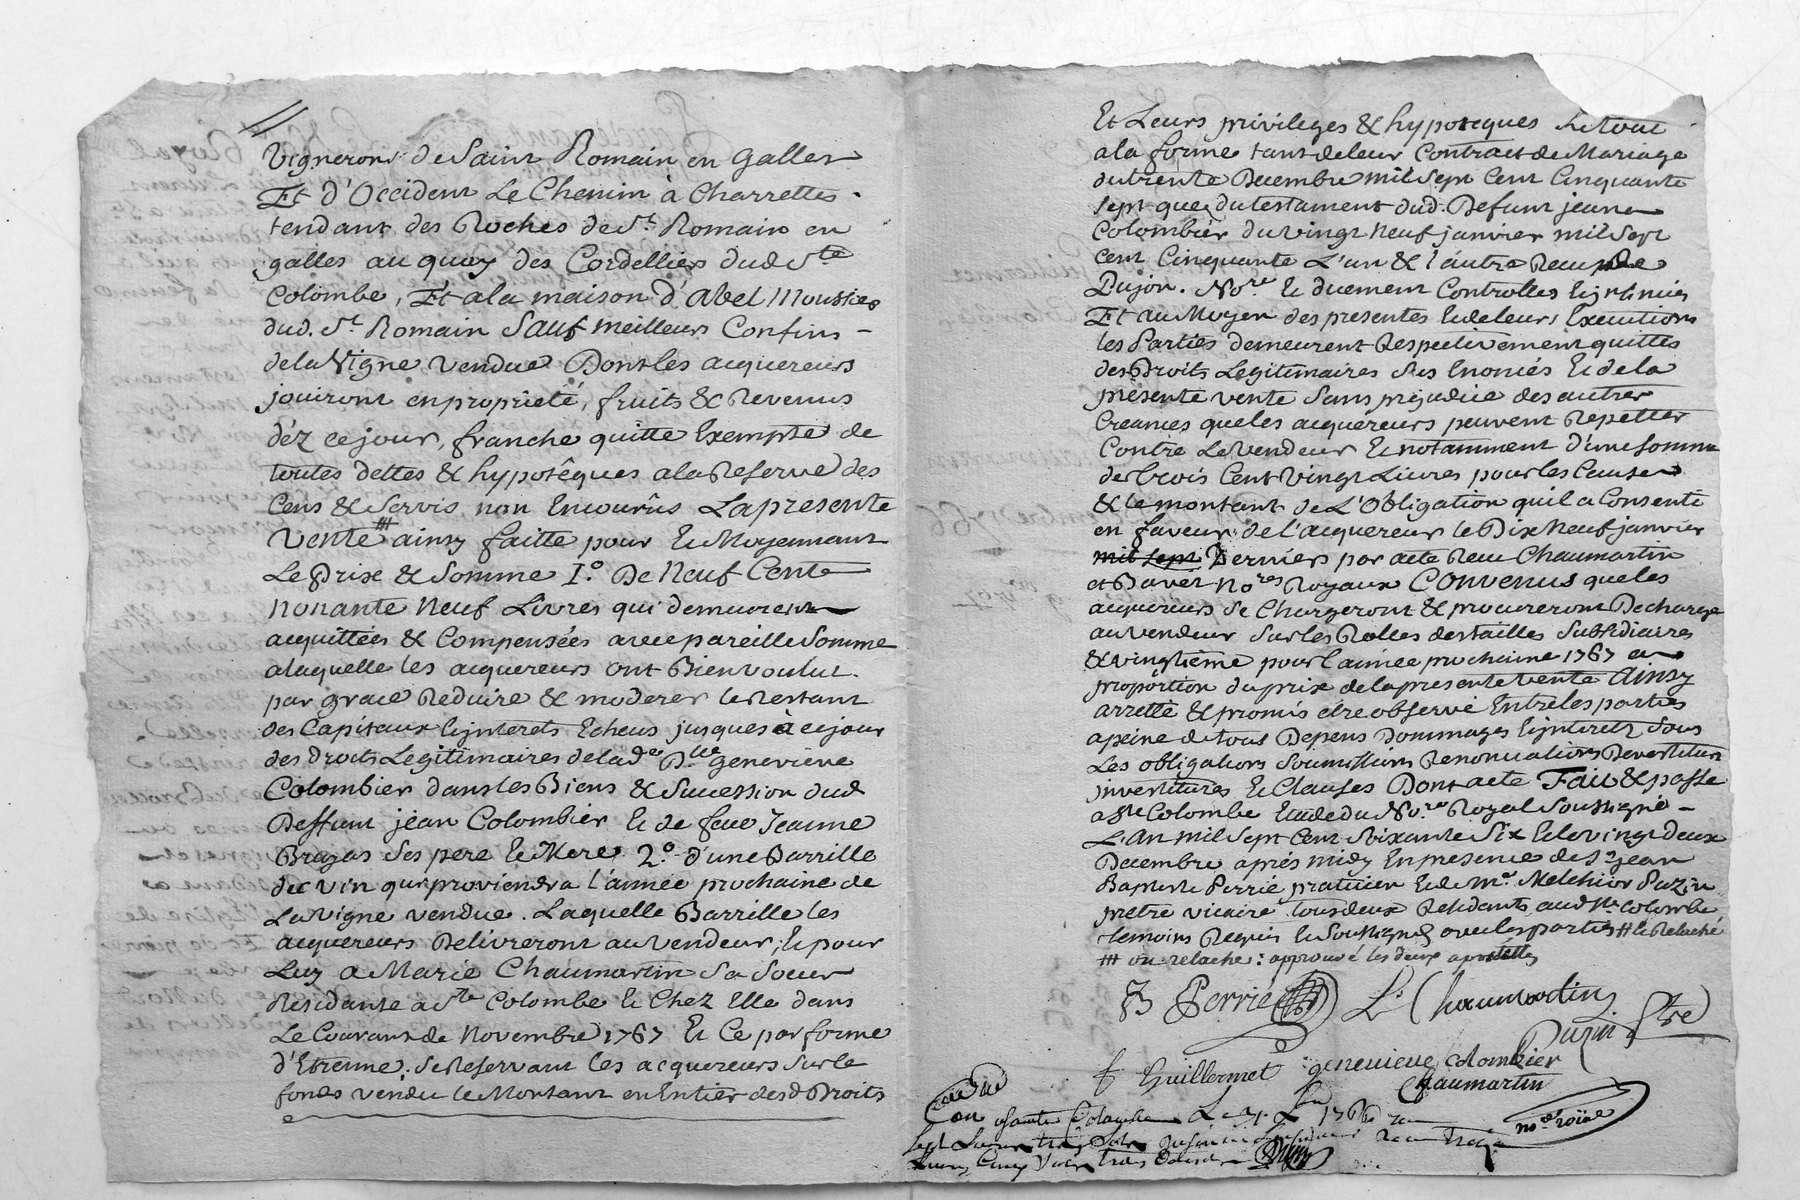 Vignerons de Saint Romain en galles
Et d'Occident Le Chemin à Charrettes
tendant des Roches de St. Romain en
galles au quay des Cordelliers dud Ste
Colombe, Et ala maison d'Abel Moussier
dud. St. Romain Sauf meilleurs Confins
dela Vigne vendue Dont les acquereurs
jouiront en proprieté, fruits & Revenus
déz ce jour, franche quitte Exempte de
toutes dettes & hypotêques ala Reserve des
Cens & Servis non Encourûs La presente
Vente # ainsy faitte pour Et Moyennant
Le Prix & Somme 1.° De Neuf Cents
Nonante Neuf Livres qui demeurent
acquittées & Compensées avec pareille Somme
alaquelle les acquereurs ont Bien voulut
par grace Reduire & moderer le Restant
des Capitaux & interets Echeus jusques à ce jour
des droits Legitimaires de lade. Dlle geneviéve
Colombier dans les Biens & Succession dud
Deffunt jean Colombier Et de feue Jeanne
Brazas Ses pere Et Mere 2.° d'une Barrille
de vin qui proviendra l'année prochaine de
La Vigne vendue. Laquelle Barrille les
acquereurs Delivreront au vendeur, Et pour
Luy a Marie Chaumartin Sa Soeur
Residante a Ste Colombe Et Chez Elle dans
Le Courant de Novembre 1767 Et Ce par forme
d'Etrenne. Se Reservant les acquereurs Sur le
fonds vendu le Montant en Entier desd Droits
Et Leurs privileges & hypoteques Le tout
ala forme tant de leur Contract de Mariage
du trente Decembre mil Sept Cent Cinquante
Sept que du testament dud. Defunt jean
Colombier du vingt Neuf janvier mil Sept
Cent Cinquante L'un & l'autre Recu
Dujon. Nore. Et duement Controllés Et insinués
Et au Moyen des presentes Et de leurs Executions
les Parties demeurent Respectivement quittes
des Droits Legitimaires Sus Enoncés Et de la
présente vente Sans préjudice des autres
Creances que les acquéreurs peuvent Repetter
Contre Le Vendeur Et notamment d'une Somme
de trois Cent Vingt Livres pour les Causes
& le montant de L'Obligation quil a Consenti
en faveur de l'acquereur le Dix Neuf janvier
mil Sept Dernier par acte Recu Chaumartin
et Bavet Nores Royaux Convenus que les
acquereurs Se Chargeront & procureront Decharge
au Vendeur Sur les Rolles des tailles Subsidiaires
& vingtiéme pour l'année prochaine 1767 en
proportion du prix de la presente Vente Ainsy
arretté & promis etre observé Entre les parties
a peine de tous Depens Dommages & interets Sous
Les obligations Soumissions Renonciations Devestitures
investitures Et Clauses Dont acte Fait & passé
a Ste Colombe Etude du Nore Royal Soussigné
L'An mil Sept Cent Soixante Six Et le vingt deux
Decembre aprés midy En presence de Sr jean
Baptiste Perrié praticien Et de me. Melchior Puzin
prêtre vicaire tous deux Residants aud Ste Colombe
témoins Requis Et Soussignés avec les parties # & Relaché
# ou relache: approuvé les deux apostilles
JB Perrié Ls Chaumartin
Puzin Ptre
f Guillermet genevieve Colombier
Chaumartin
no.re roïal
1766